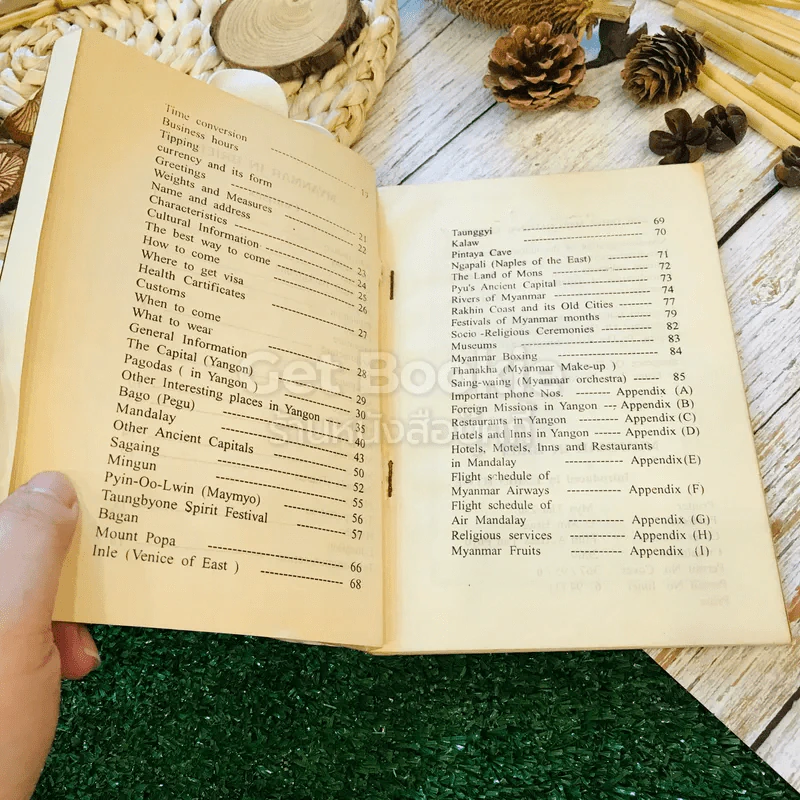 Time conversion
Business hours
Tipping
currency and its form
Greetings
Weights and Measures 21
Name and address 22
Characteristics
Cultural Information 23
The best way to come 24
How to come 25
Where to get visa 26
Health Cartificates
Customs 27
When to come
What to wear
General Information 28
The Capital (Yangon) 29
Pagodas ( in Yangon ) 30
Other Interesting places in Yangon 35
Bago (Pegu) 40
Mandalay 43
Other Ancient Capitals 50
Sagaing 52
Mingun 55
Pyin-Oo-Lwin (Maymyo) 56
Taungbyone Spirit Festival 57
Bagan
Mount Popa 66
Inle (Venice of East ) 68
Taunggyi 69
Kalaw 70
Pintaya Cave
Ngapali (Naples of the East) 71
The Land of Mons 72
Pyu's Ancient Capital 73
Rivers of Myanmar 74
Rakhin Coast and its Old Cities 77
Festivals of Myanmar months 79
Socio -Religious Ceremonies 82
Museums 83
Myanmar Boxing 84
Thanakha (Myanmar Make-up )
Saing-waing (Myanmar orchestra) 85
Important phone Nos. Appendix (A)
Foreign Missions in Yangon --- Appendix (B)
Restaurants in Yangon Appendix (C)
Hotels and Inns in Yangon Appendix (D)
Hotels, Motels, Inns and Restaurants
in Mandalay Appendix(E)
Flight schedule of
Myanmar Airways Appendix (F)
Flight schedule of
Air Mandalay Appendix (G)
Religious services Appendix (H)
Myanmar Fruits Appendix (I)